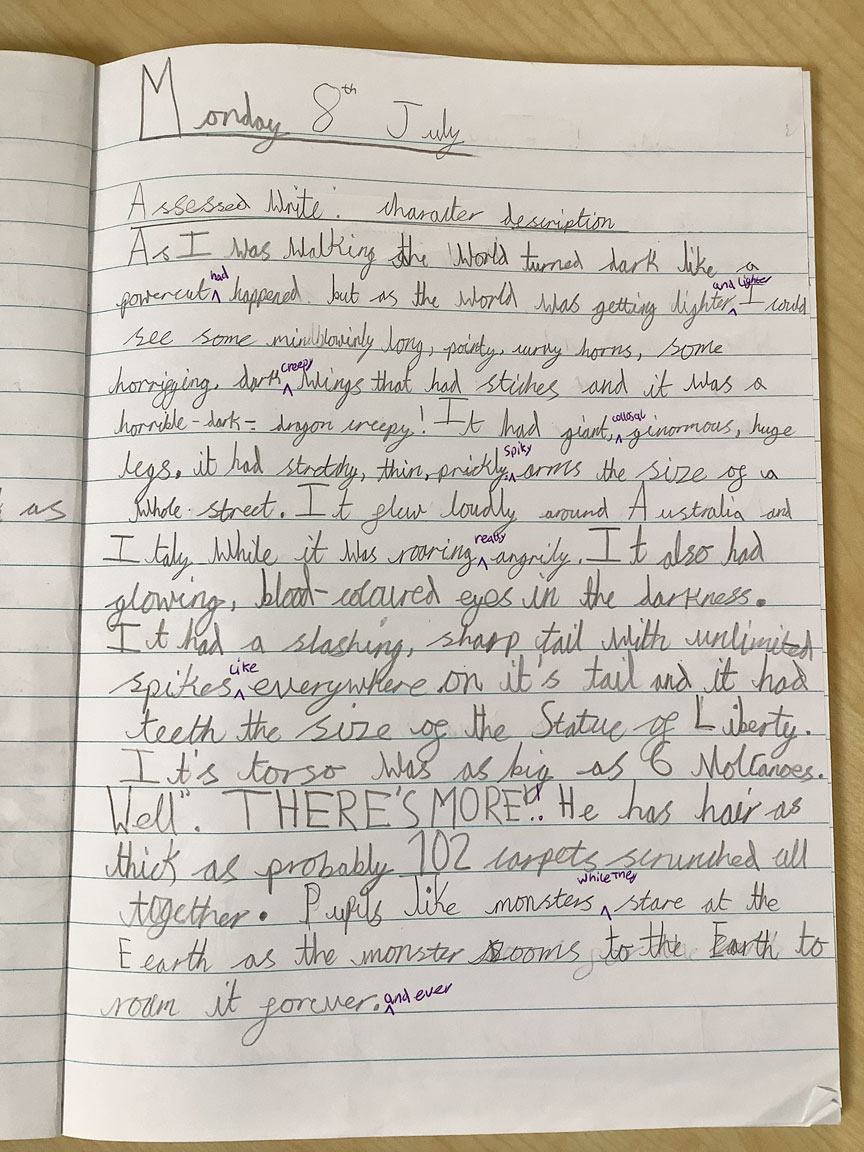 Monday 8th July
Assessed Write: character description
As I was walking the World turned dark like a
powercut had happened. but as the world was getting lighter and lighter I could
see some mindblowinly long, pointy, curvy horns, some
horrigging, dark creepy wings that had stiches and it was a
horrible-dark-dragon creepy! It had giant, collosal ginormous, huge
legs. it had stretchy, thin, prickly, spiky arms the size of a
whole street. It flew loudly around Australia and
Italy while it was roaring really angrily. It also had
as
glowing, blood-coloured eyes in the darkness.
It had a slashing, sharp tail with unlimited
spikes like everywhere on it's tail and it had
teeth the size of the Statue of Liberty.
It's torso was as big as 6 Molcanoes.
Well". THERE'S MORE!! He has hair as
thick as probably 102 carpets scrunched all
together. Pupils like monsters while they stare at the
Eearth as the monster zooms to the Earth to
roam it forever. and ever